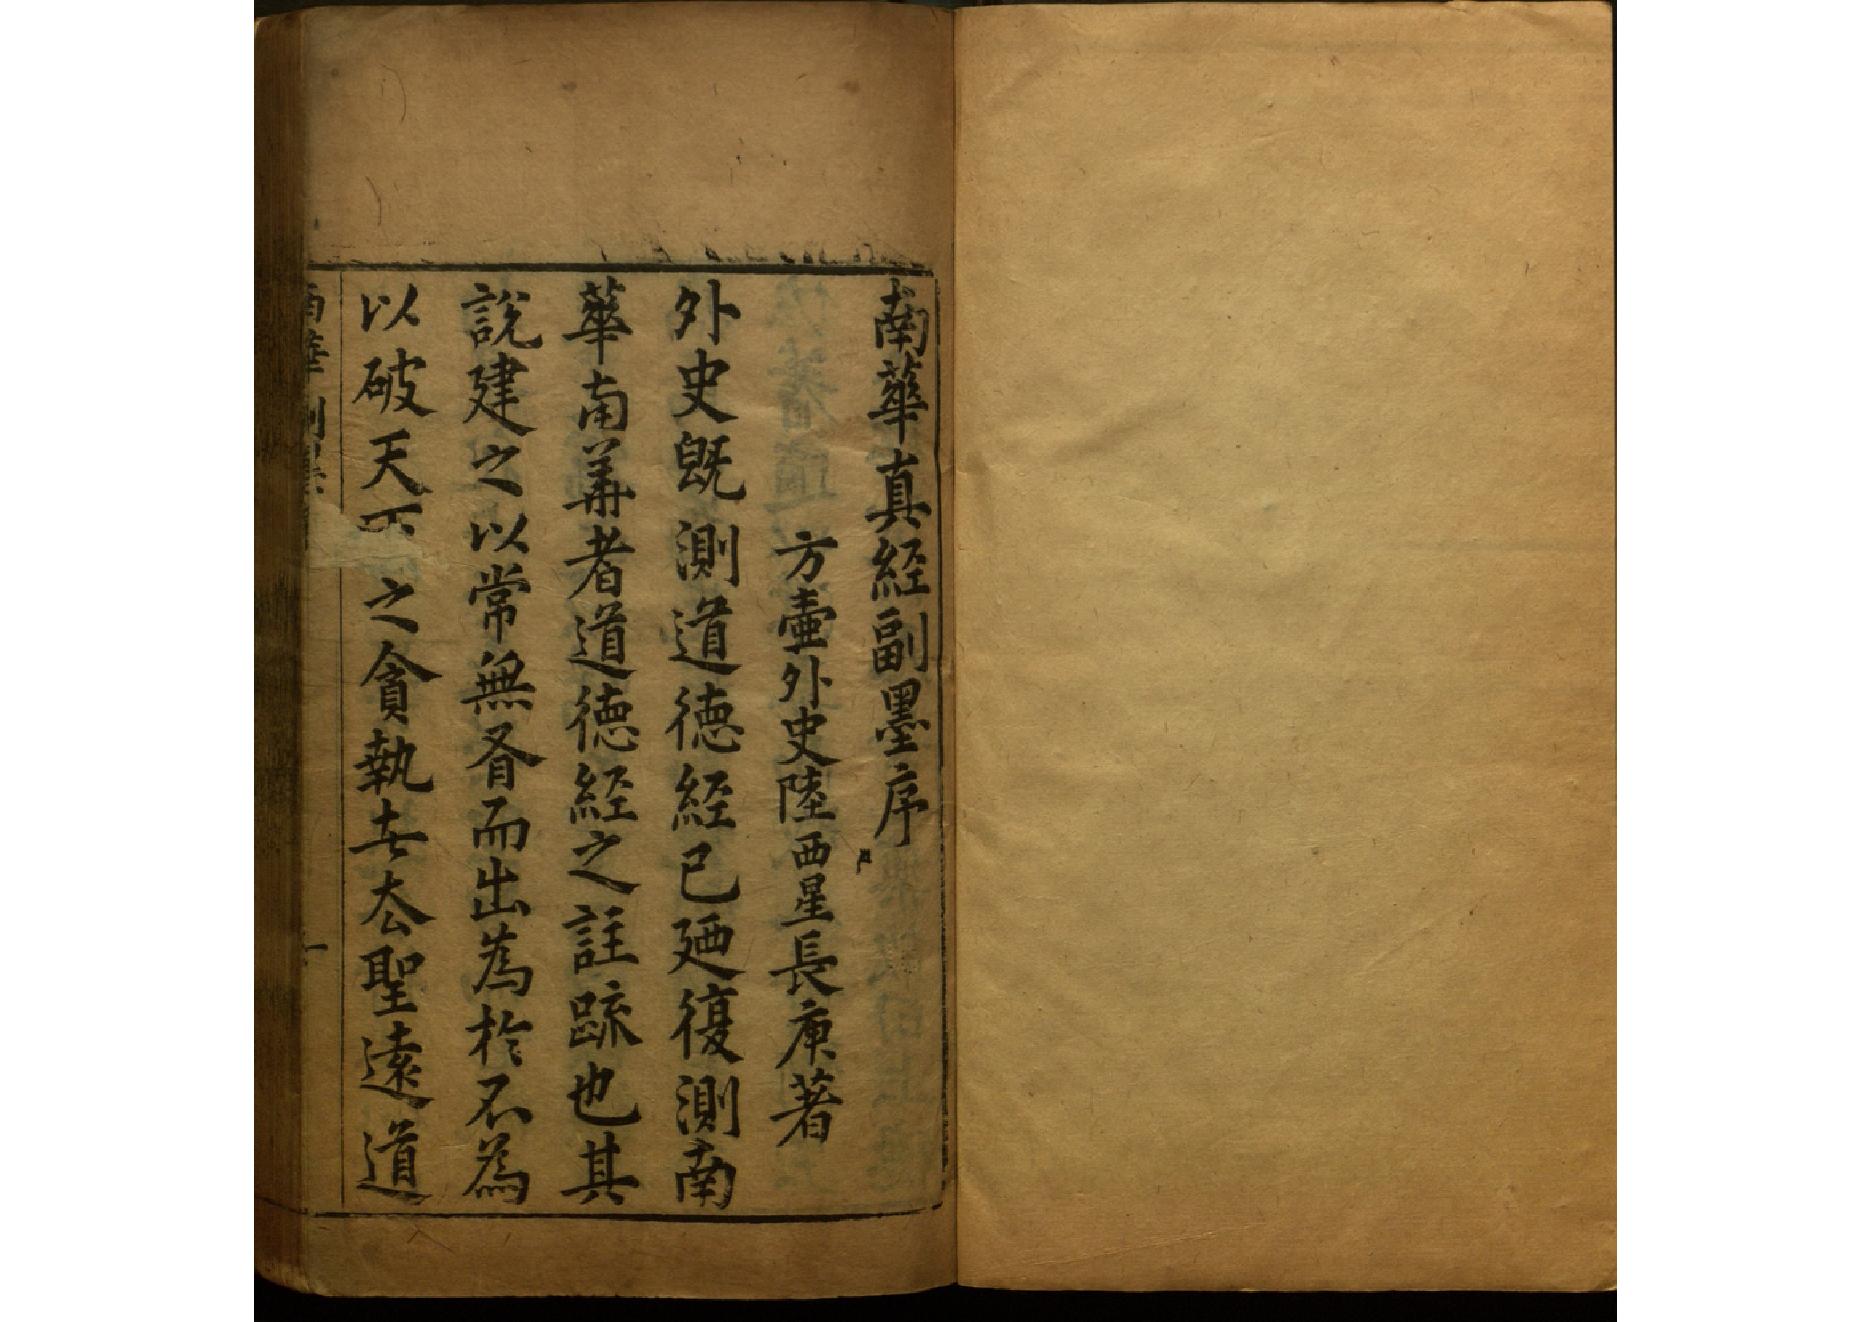 南華真經副墨序
方壺外史陸西星長庚著
外史既測道德經已廼復測南
華南華者道德經之註䟽也其
說建之以常無𣅜而出為於不為
以破天下之貪執去太聖遠道
南華副墨
一